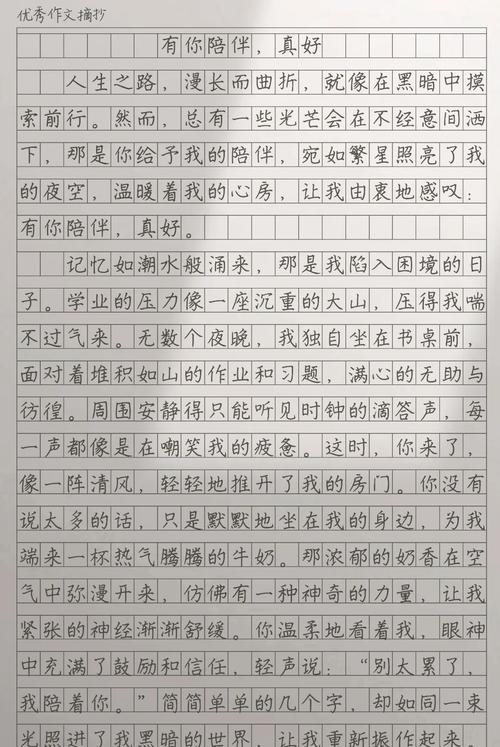 优秀作文摘抄
有你陪伴，真好
人生之路，漫长而曲折，就像在黑暗中摸
索前行。然而，总有一些光芒会在不经意间洒
下，那是你给予我的陪伴，宛如繁星照亮了我
的夜空，温暖着我的心房，让我由衷地感叹：
有你陪伴，真好。
记忆如潮水般涌来，那是我陷入困境的日
子。学业的压力像一座沉重的大山，压得我喘
不过气来。无数个夜晚，我独自坐在书桌前，
面对着堆积如山的作业和习题，满心的无助与
彷徨。周围安静得只能听见时钟的滴答声，每
一声都像是在嘲笑我的疲惫。这时，你来了，
像一阵清风，轻轻地推开了我的房门。你没有
说太多的话，只是默默地坐在我的身边，为我
端来一杯热气腾腾的牛奶。那浓郁的奶香在空
气中弥漫开来，仿佛有一种神奇的力量，让我
紧张的神经渐渐舒缓。你温柔地看着我，眼神
中充满了鼓励和信任，轻声说：“别太累了，
我陪着你。”简简单单的几个字，却如同一束
光照进了我黑暗的世界，让我重新振作起来。